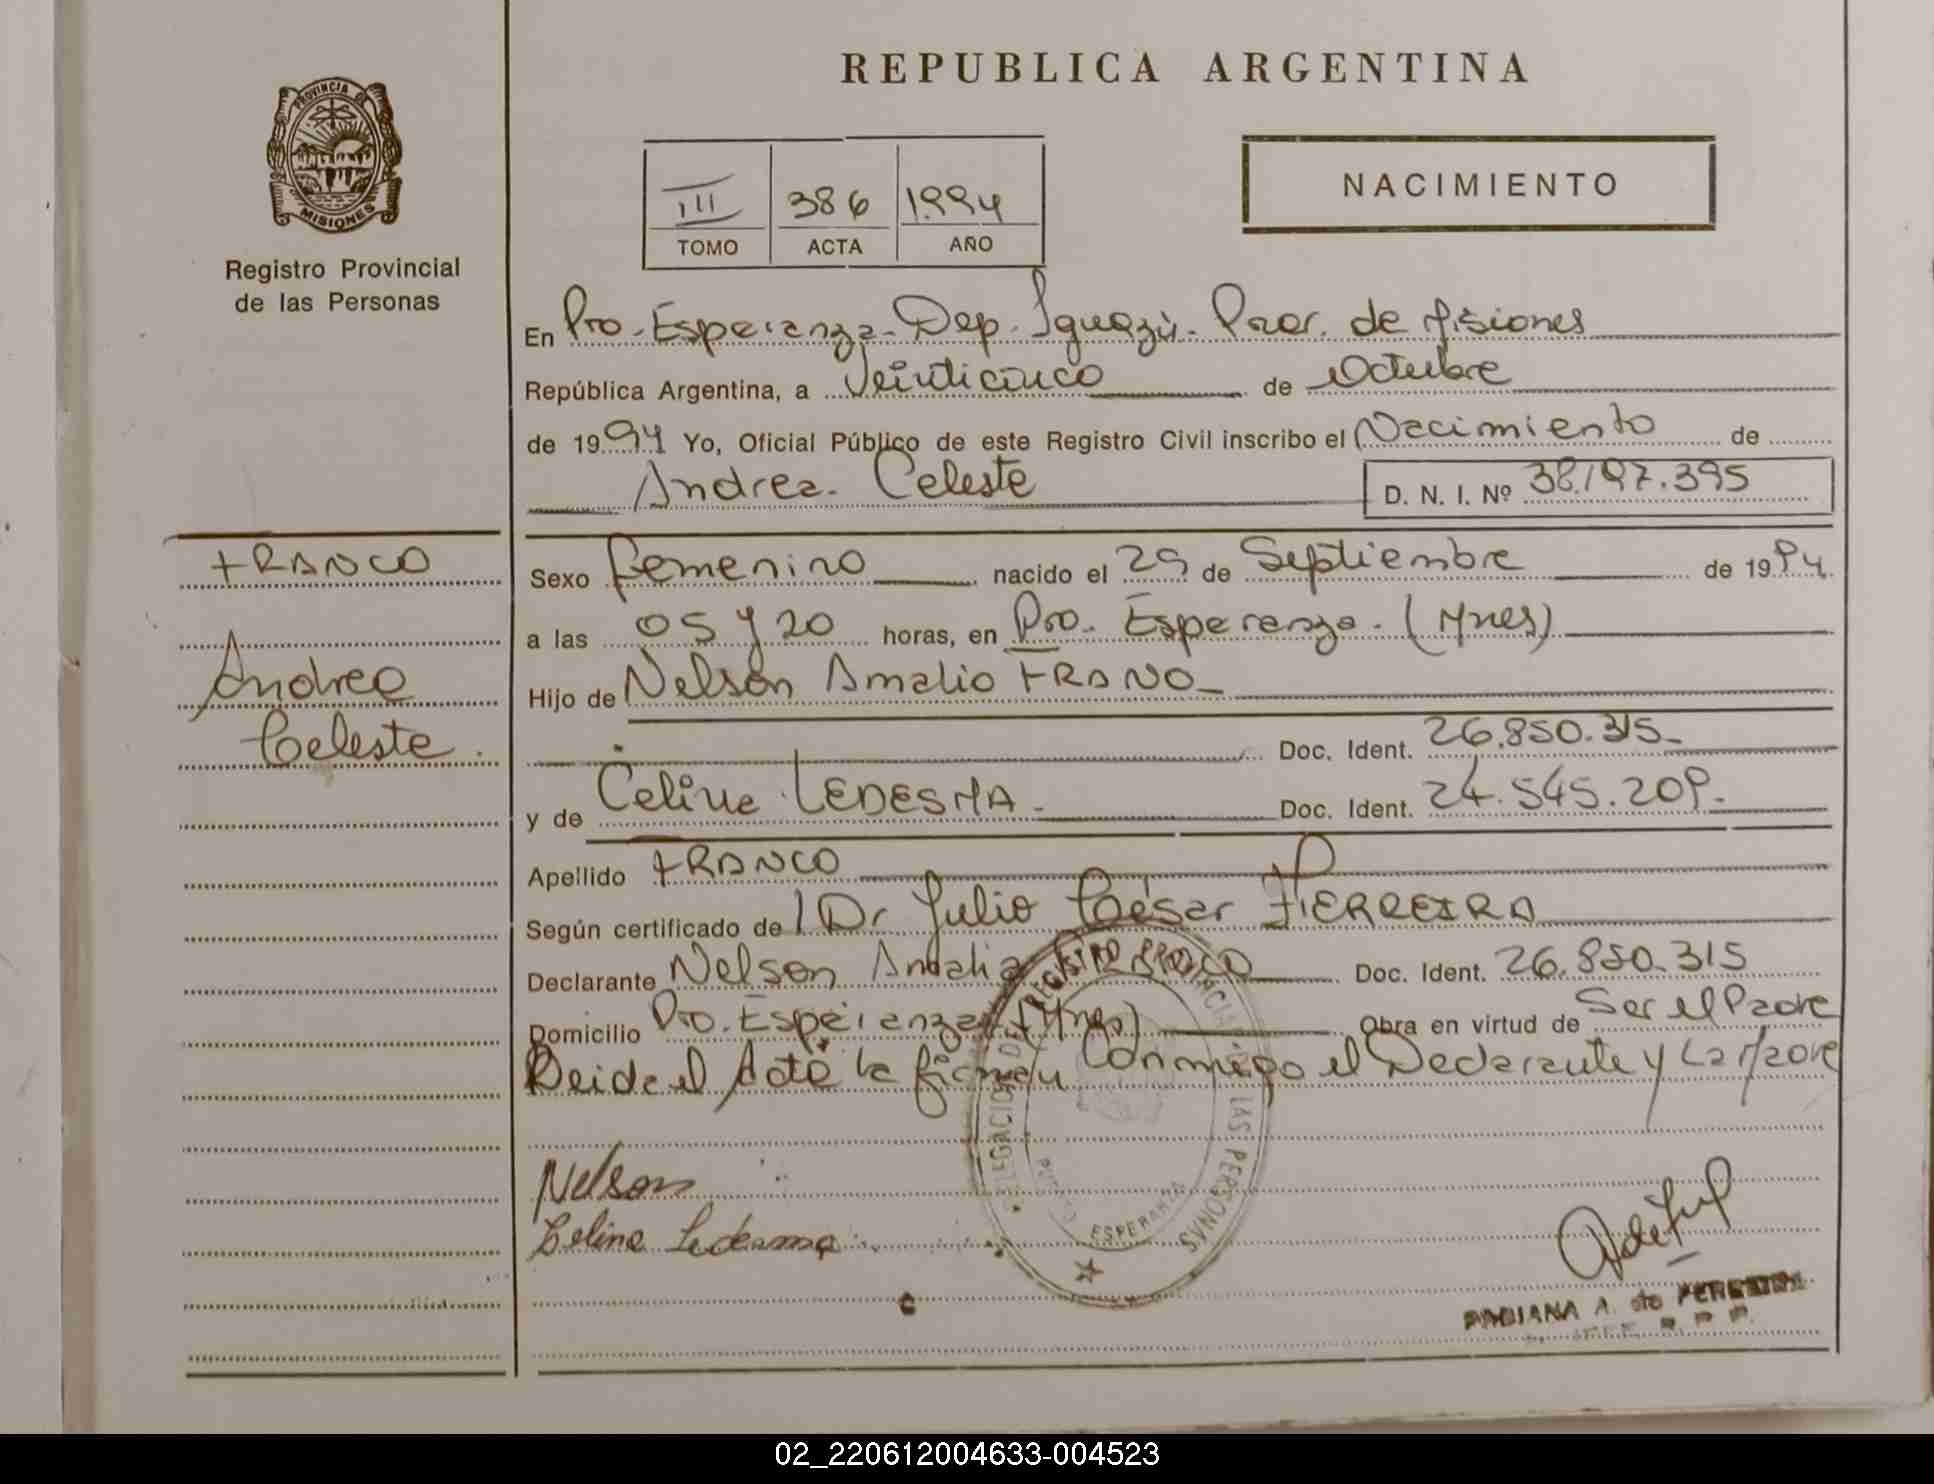 REPUBLICA ARGENTINA
PROVINCIA DE
MISIONES
Registro Provincial
de las Personas
III 386 1994
TOMO ACTA AÑO
NACIMIENTO
En Pto. Esperanza. Dep. Iguazú. Prov. de Misiones
República Argentina, a Veinticinco de Octubre
de 1994 Yo, Oficial Público de este Registro Civil inscribo el Nacimiento de
Andrea. Celeste D. N. I. Nº 38.197.395
FRANCO
Andrea
Celeste.
Sexo Femenino nacido el 29 de Septiembre de 1994.
a las 05 y 20 horas, en Pto. Esperanza. (Mnes)
Hijo de Nelson Amalio FRANO
Doc. Ident. 26.850.315
y de Celina LEDESMA Doc. Ident. 24.545.209.
Apellido FRANCO
Según certificado de l Dr Julio César FIERREIRA
Declarante Nelson Amalio FRANCO Doc. Ident. 26.850.315
Domicilio Pto. Esperanza (Mnes) Obra en virtud de Ser el Padre
Leida el Acta la firman Conmigo el Declarante y La Madre
DELEGACION DEL REGISTRO PROVINCIAL DE LAS PERSONAS
PUERTO ESPERANZA
Nelson
Celina Ledesma
FABIANA A. de PEREIRA
02_220612004633-004523